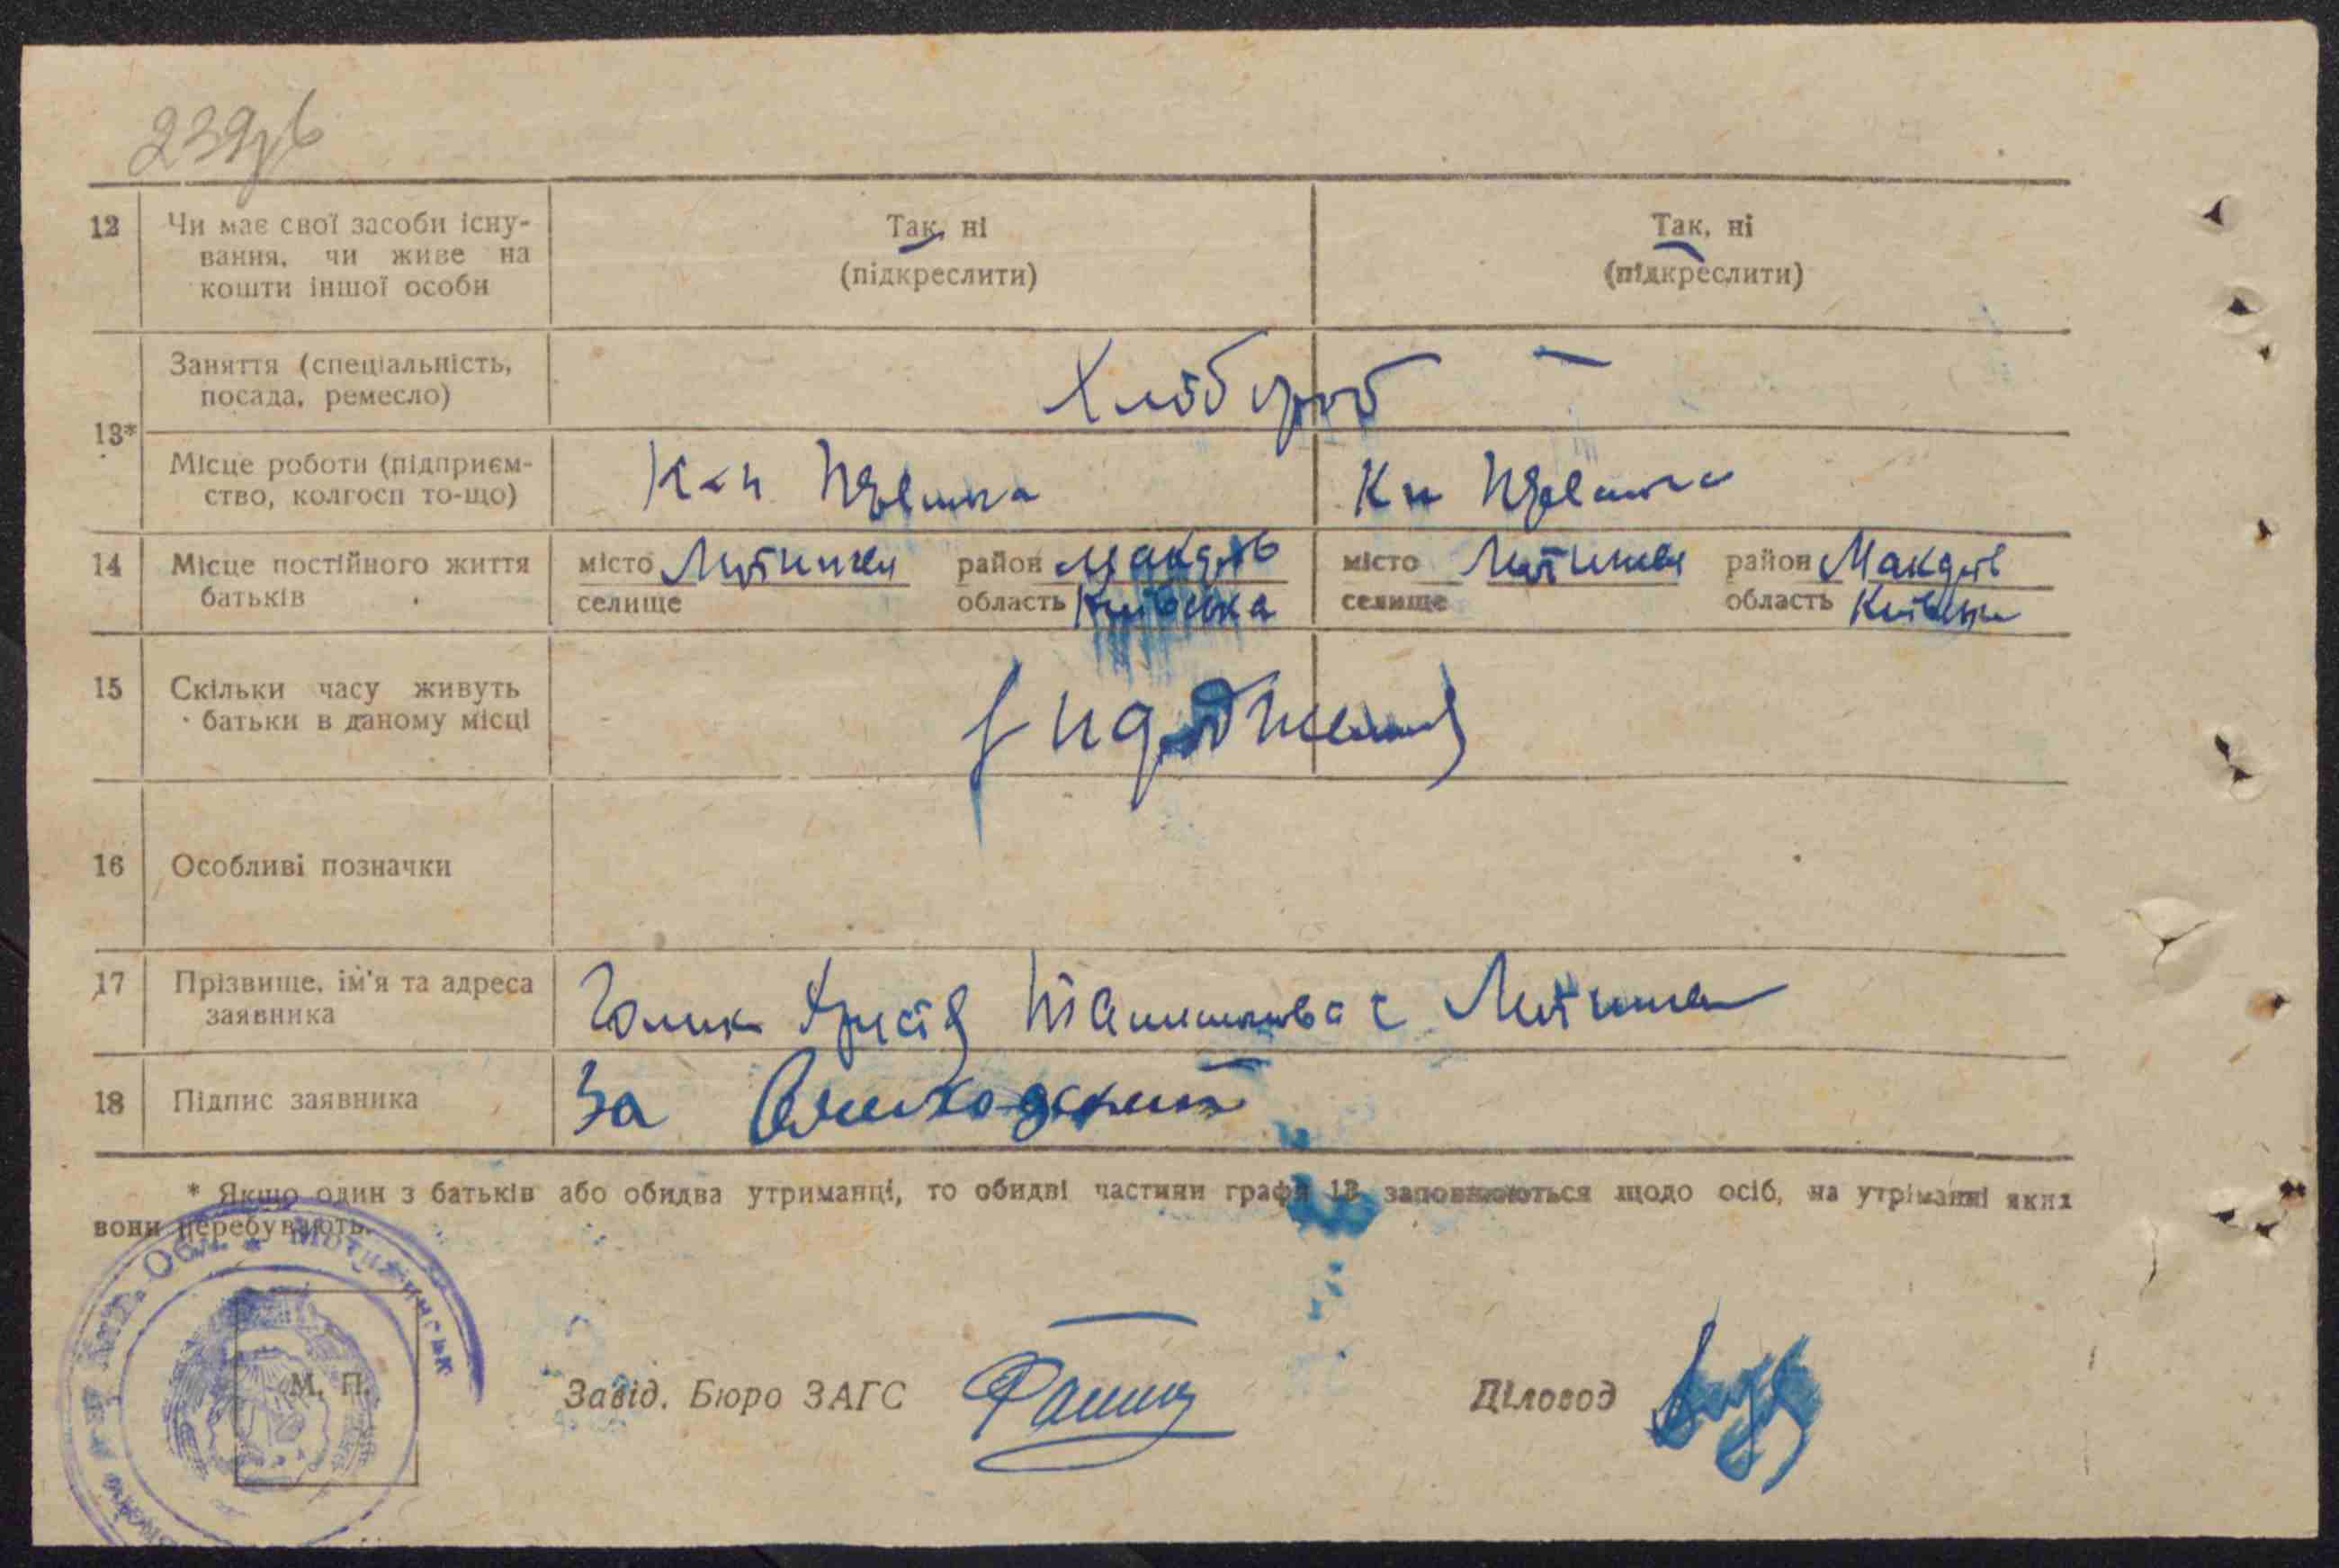 12 Чи має свої засоби існу-
вання, чи живе на
кошти іншої особи
Так, ні
(підкреслити)
Так, ні
(підкреслити)
13*
Заняття (спеціальність,
посада, ремесло)
Хлібороб
Місце роботи (підприєм-
ство, колгосп то-що)
14 Місце постійного життя
батьків
місто Мотижин район Макарів
селище область Київська
місто Мотижин район Макарів
селище область Київська
15 Скільки часу живуть
батьки в даному місці
з народження
16 Особливі позначки
17 Прізвище, ім'я та адреса
заявника
Голик Христя с Мотижин
18 Підпис заявника
За
* Якщо один з батьків або обидва утриманці, то обидві частини графи 13 заповнюються щодо осіб, на утріманні яких
вони перебувають.
Обл. * Мотижинськ
М. П.
Завід. Бюро ЗАГС
Діловод